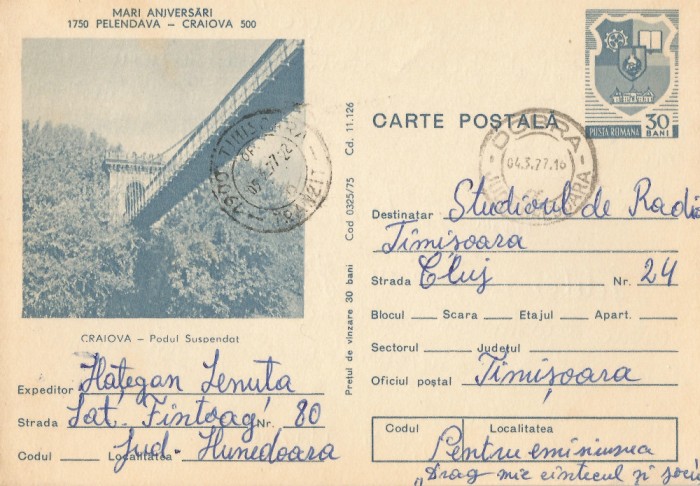 MARI ANIVERSĂRI
1750 PELENDAVA – CRAIOVA 500
CRAIOVA – Podul Suspendat
Expeditor Hațegan Lenuța
Strada Sat. Fintoag Nr. 80
Codul Localitatea Jud. Hunedoara
Prețul de vînzare 30 bani Cod 0325/75 Cd. 11.126
CARTE POȘTALĂ
POSTA ROMANA
30
BANI
DOBRA
04.3.77.16
1900 TIMIȘ
TRANZIT
Destinatar Studioul de Radio
Timișoara
Strada Cluj Nr. 24
Blocul Scara Etajul Apart.
Sectorul Județul
Oficiul poștal Timișoara
Codul Localitatea
Pentru emisiunea
„Drag mie cîntecul și jocu